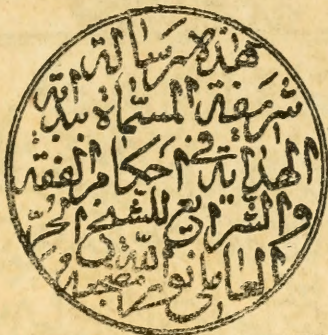 هذه رسالة
شريفة المسماة ببداية
الهداية في احكام الفقه
والشرايع للشيخ الحر
العاملي نور الله مضجعه